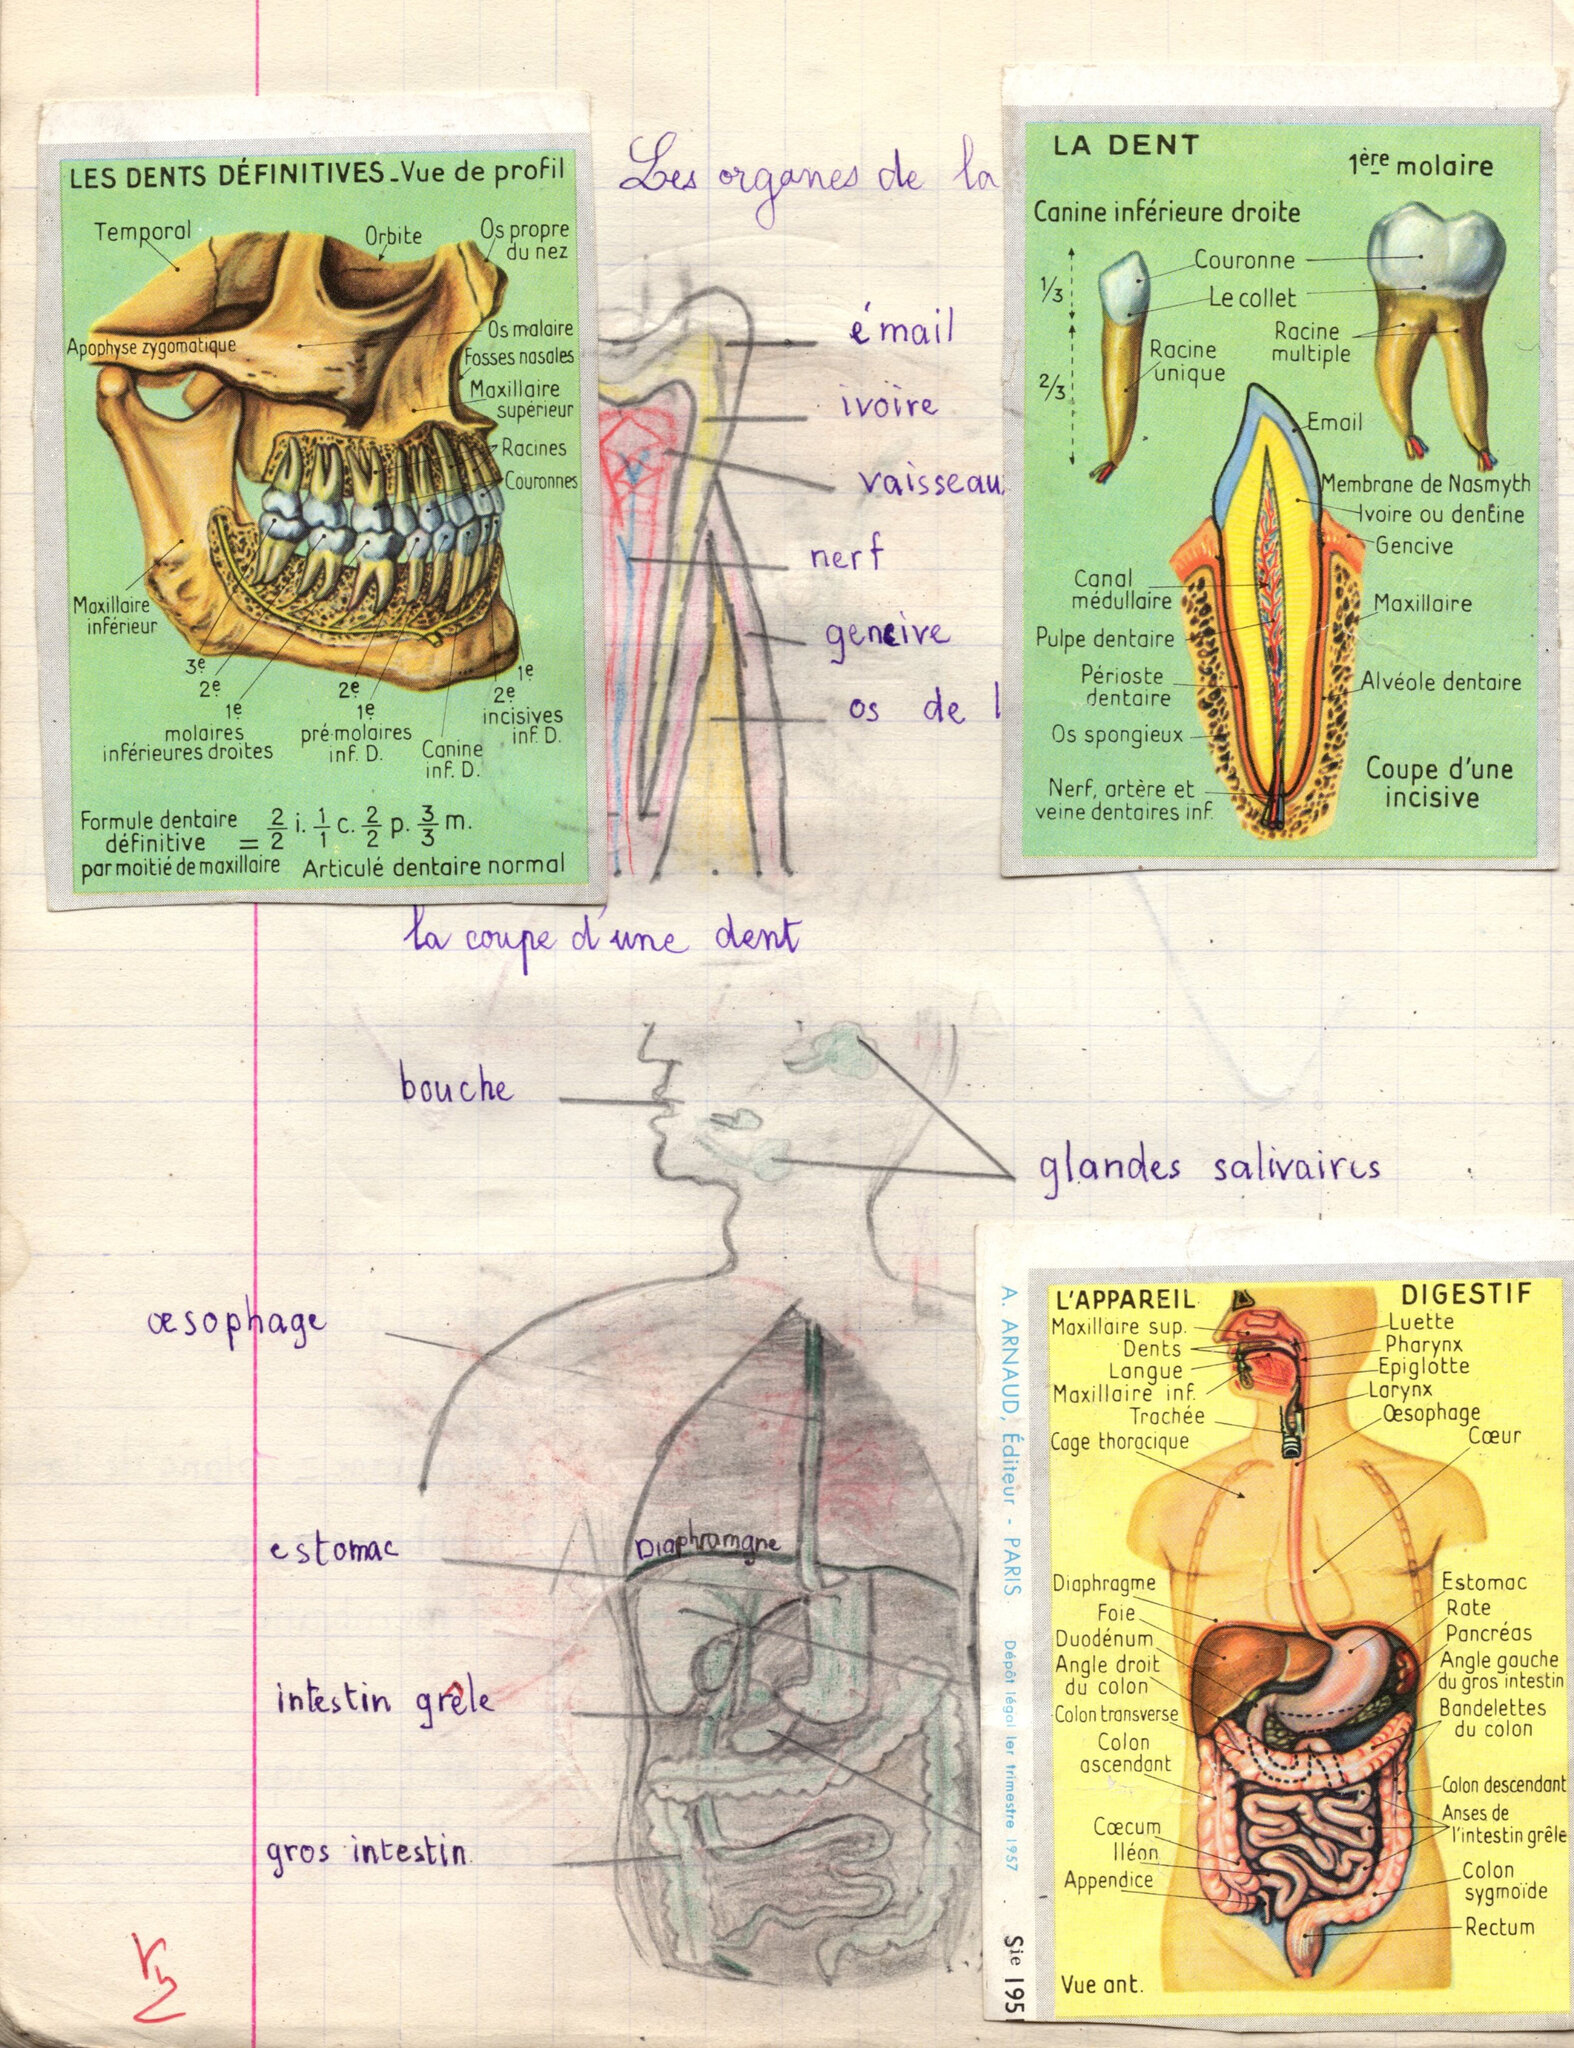 LES DENTS DÉFINITIVES - Vue de profil
Temporal
Orbite
Os propre
du nez
Apophyse zygomatique
Os malaire
Fosses nasales
Maxillaire
supérieur
Racines
Couronnes
Maxillaire
inférieur
3e
2e
1e
molaires
inférieures droites
2e
1e
pré-molaires
inf. D.
Canine
inf. D.
1e
2e
incisives
inf. D.
Formule dentaire
définitive
par moitié de maxillaire
= 2/2 i. 1/1 c. 2/2 p. 3/3 m.
Articulé dentaire normal
Les organes de la
émail
ivoire
vaisseau
nerf
gencive
os de l
la coupe d'une dent
LA DENT
1ère molaire
Canine inférieure droite
Couronne
1/3
Le collet
Racine
multiple
Racine
unique
2/3
Email
Membrane de Nasmyth
Ivoire ou dentine
Gencive
Canal
médullaire
Maxillaire
Pulpe dentaire
Périoste
dentaire
Alvéole dentaire
Os spongieux
Nerf, artère et
veine dentaires inf.
Coupe d'une
incisive
bouche
glandes salivaires
œsophage
Diaphramgne
estomac
intestin grêle
gros intestin
A. ARNAUD, Éditeur - PARIS
Dépôt légal 1er trimestre 1957
Sie 195
L'APPAREIL DIGESTIF
Maxillaire sup.
Dents
Langue
Maxillaire inf.
Trachée
Cage thoracique
Luette
Pharynx
Epiglotte
Larynx
Œsophage
Cœur
Diaphragme
Foie
Duodénum
Angle droit
du colon
Colon transverse
Colon
ascendant
Cœcum
Iléon
Appendice
Estomac
Rate
Pancréas
Angle gauche
du gros intestin
Bandelettes
du colon
Colon descendant
Anses de
l'intestin grêle
Colon
sygmoïde
Rectum
Vue ant.